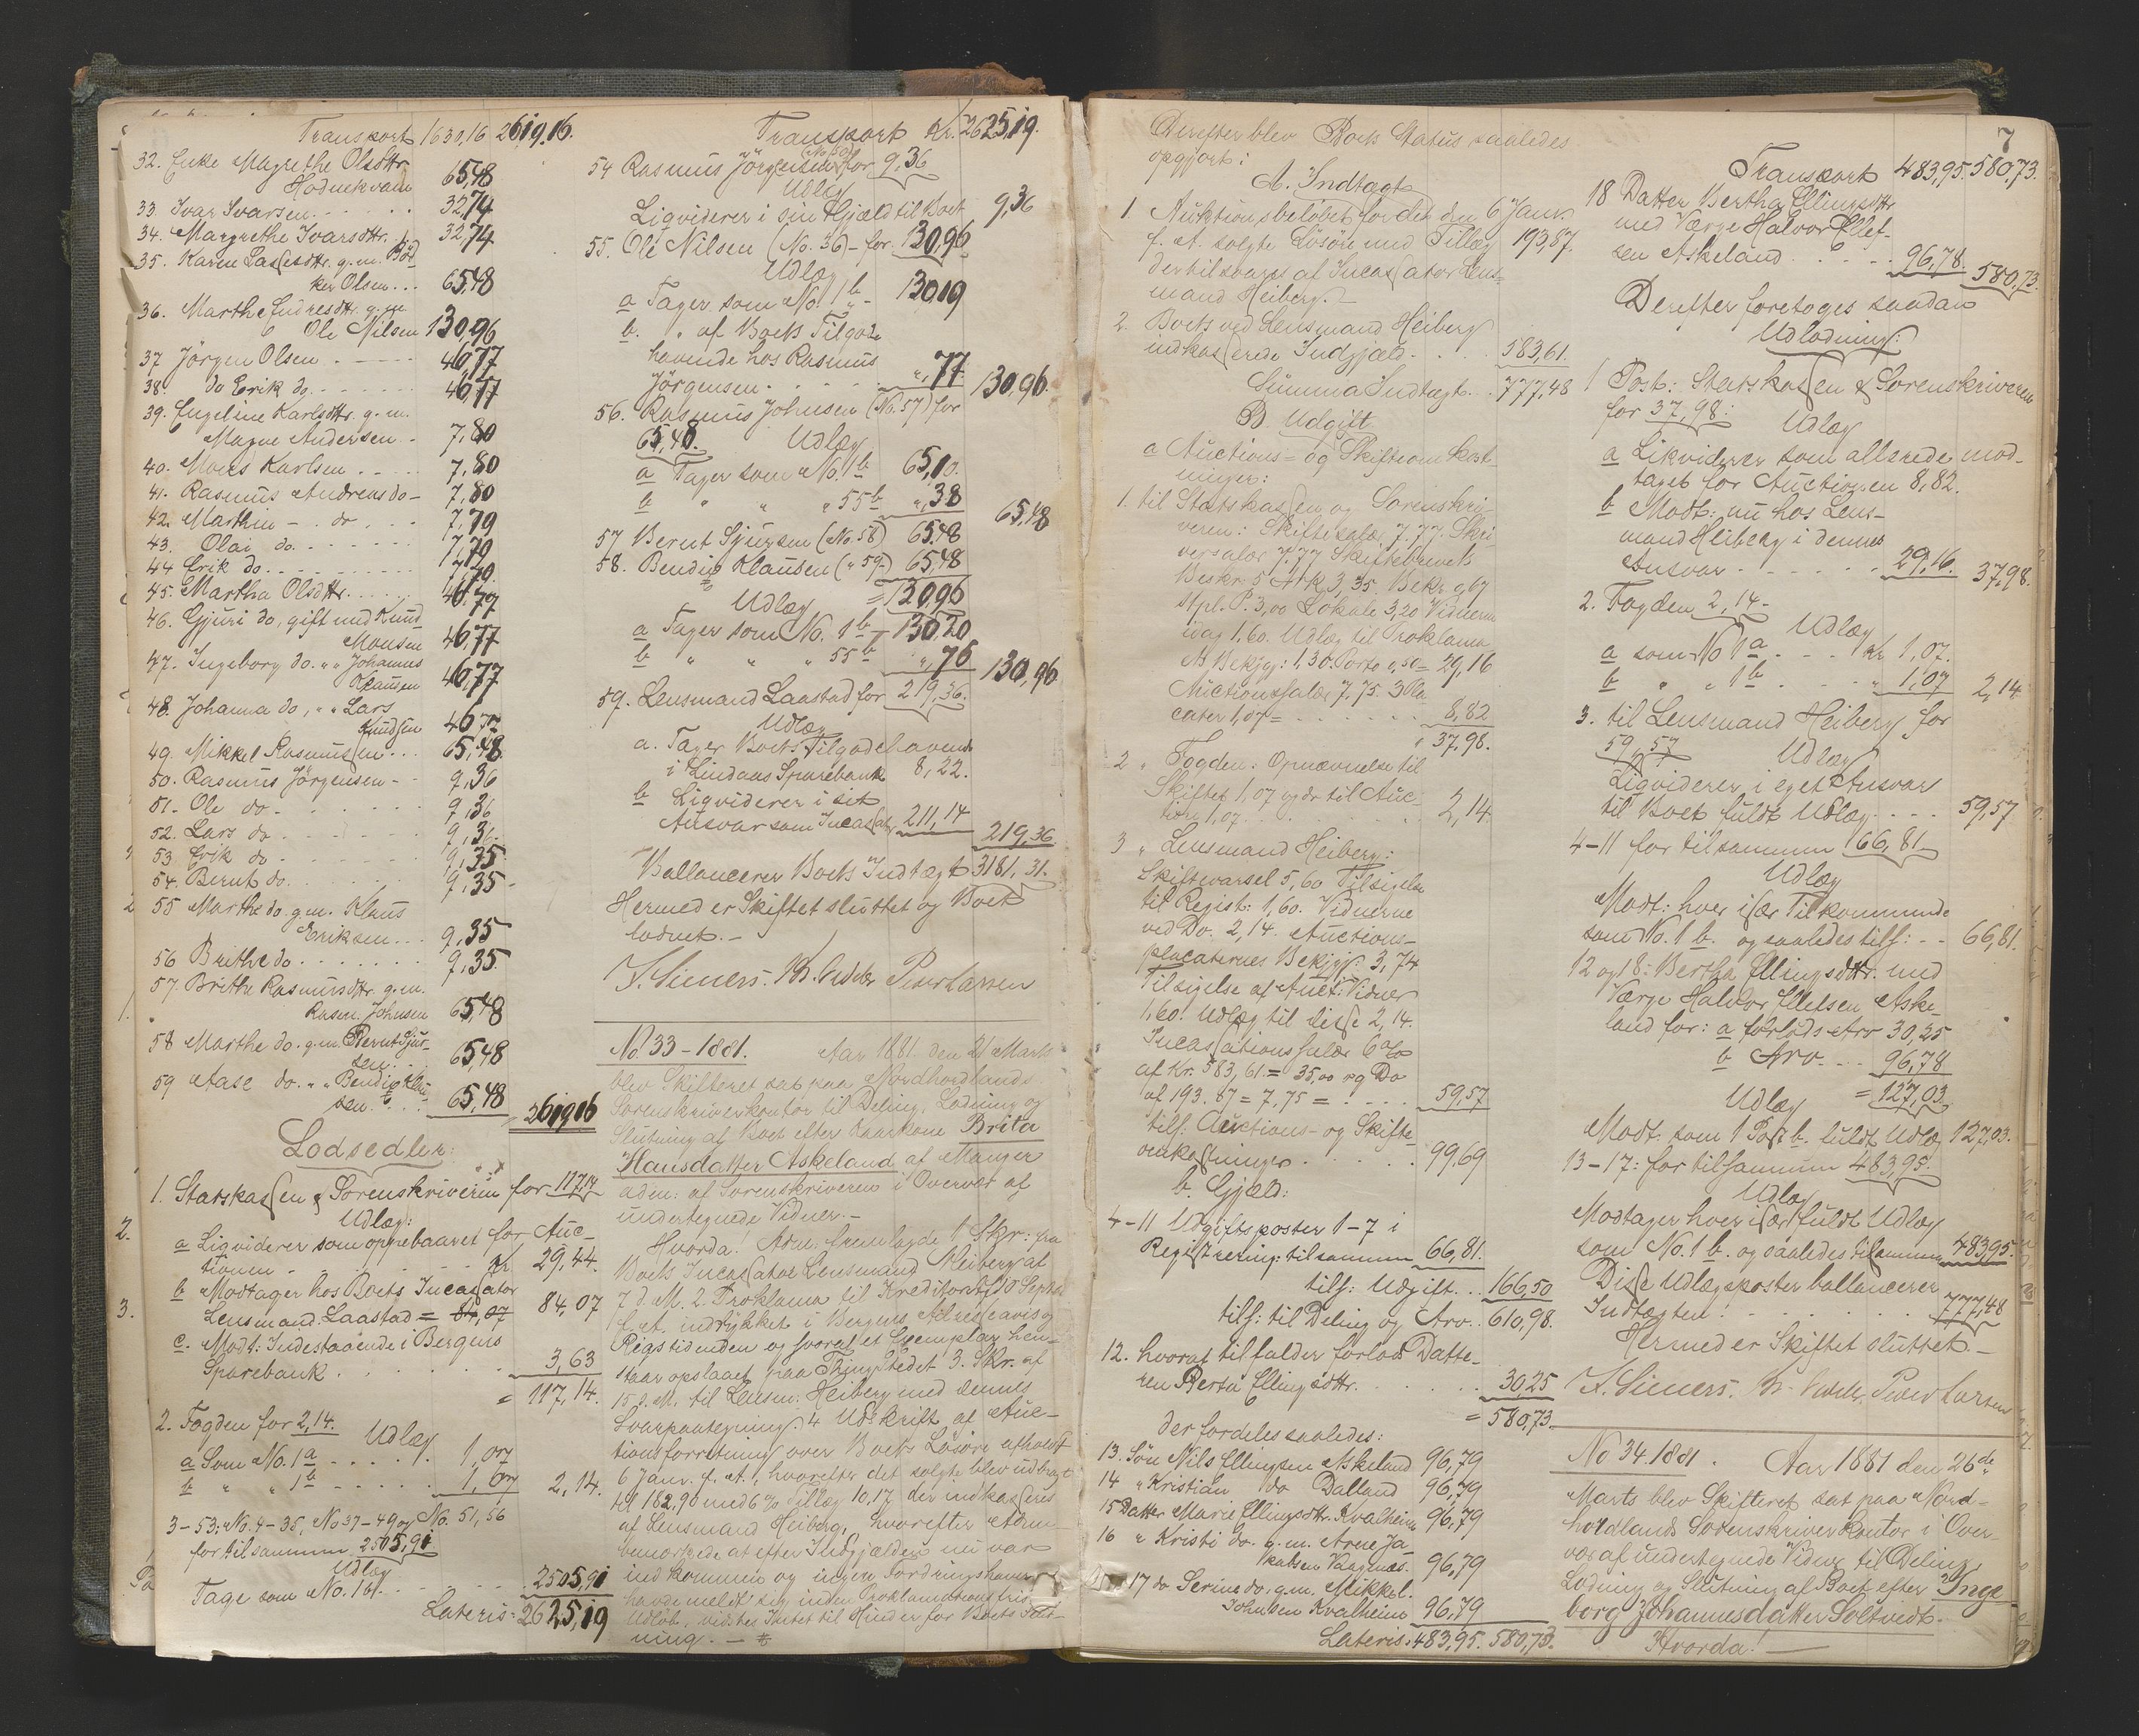 Transport 1630,16 2619,16.
32. Enke Magrethe Olsdttr
Hodnekvam 65,48
33. Ivar Ivarsen 32,74
34. Margrethe Ivarsdttr. 32,74
35. Karen Lassesdttr. g. m. Bød-
ker Olsen 65,48
36. Marthe Endresdttr. g. m.
Ole Nilsen 130,96
37 Jörgen Olsen 46,77
38. do Erik do. 46,77
39. Engeline Karlsdttr. g. m.
Magne Andersen 7,80
40. Mons Karlsen 7,80
41. Rasmus Andreas do 7,80
42. Marthin - do 7,79
43. Olai do. 7,79
44 Erik do. 7,79
45. Martha Olsdttr. 46,77
46. Gjuri do, gift med Knud
Monsen 46,77
47. Ingeborg do. " " Johannes
Klausen 46,77
48. Johanna do, " " Lars
Knudsen 46,77
49. Mikkel Rasmussen 65,48
50. Rasmus Jörgensen 9,36
51. Ole do 9,36
52. Lars do 9,36
53 Erik do 9,35
54. Bernt do. 9,35
55 Marthe do. g. m. Klaus
Eriksen 9,35
56 Brithe do 9,35
57. Brithe Rasmusdttr g. m.
Rasm. Johnsen 65,48
58 Marthe do. g. m. Bernt Sjur-
sen 65,48
59 Aase do. " " Bendix Klau-
sen 65,48 2619,16
Lodsedler:
1. Statskassen & Sorenskriveren for 117,14
Udlæg:
a Liqviderer som oppebaaret for Auc-
tionen Kr 29,44.
b Modtager hos Boets Incassator
Lensmand Laastad = 84,07 84,07
c. Modt: Indestaaende i Bergens
Sparebank 3,63
= 117,14.
2. Fogden for 2,14.
Udlæg
a Som No. 1 a 1,07
b " " 1 b 1,07 2,14.
3-53: No. 4-35, No 37-49 og No. 51, 56
for tilsammen 2505,91
Udlæg
Tage som No. 1 b. 2505,91
Lateris: 2625,19
Transport Kr. 2625,19.
54 Rasmus Jörgensen (No 50) for 9,36
Udlæg
Liqviderer i sin Gjæld til Boet 9,36
55. Ole Nilsen (No. 36) for 130,96
Udlæg
a Tager som No. 1 b 130,19
b. " af Boets Tilgode
havende hos Rasmus
Jörgensen ",77 130,96
56. Rasmus Johnsen (No. 57) for
65,48. Udlæg
a Tager som No. 1 b 65,10.
b " " " 55 b ",38 65,48
57 Bernt Sjursen (No. 58) 65,48
58. Bendix Klausen (" 59) 65,48
Udlæg = 130,96
a Tager som No. 1 b 130,20
b " " " 55 b ",76 130,96
59. Lensmand Laastad for 219,36.
Udlæg
a. Tager Boets Tilgodehavende
i Lindaas Sparebank 8,22.
b Liqviderer i sit
Ansvar som Incassator 211,14 219,36
Ballancerer Boets Indtægt 3181,31.
Hermed er Skiftet sluttet og Boet
lodnet.
Peder Larsen
No. 33-1881. Aar 1881 den 21 Marts
blev Skifteret sat paa Nordhordlands
Sorenskriverkontor til Deling, Lodning og
Slutning af Boet efter Kaarkone Brita
Hansdatter Askeland af Manger
adm: af Sorenskriveren i Overvær af
undertegnede Vidner.
Hvorda! Adm. fremlagde 1 Skr: fra
Boets Incassator Lensmand Heiberg af
7 d. M. 2. Proklama til Kreditorer 10 Septbr
f. A. indrykket i Bergens Adresseavis og
Rigstidenden og hvoraf et Exemplar hen-
staar opslaaet paa Thingstedet 3. Skr. af
15 d. M. til Lensm: Heiberg med dennes
Svarpaategning. 4 Udskrift af Auc-
tionsforretning over Boets Løsøre afholdt
6 Janv. f. A., hvorefter det solgte blev udbragt
til 182,90 med 6% Tillæg 10,97 der indkasseres
af Lensmand Heiberg, hvorefter Adm.
bemærkede at efter Indgjælden nu var
indkommen og ingen Fordringshaver
havde meldt sig inden Proklamationsfris
Udløb, vidstes Intet til Hinder for Boets Slut-
ning.
Derefter blev Boets Status saaledes
opgjort:
A. Indtægt
1. Auktionsbeløbet for den den 6 Janv.
f. A. solgte Løsøre med Tillæg 193,87.
dertil svares af Incassator Lens-
mand Heiberg.
2. Boets ved Lensmand Heiberg
indkasserede Indgjæld 583,61.
Summa Indtægt 777,48
B. Udgift
a Auctions- og Skifteomkost-
ninger:
1. til Statskassen og Sorenskri-
veren: Skiftesalær 7,77. Ski-
versalær 7,77 Skiftebrevets
Beskr: 5 Ark 3,35. Bekr. 0,67
Stpl. P. 3,00 Lokale 3,20 Vidnerne
idag 1,60. Udlæg til Proklama
Bekjg: 1,30. Porto 0,50 = 29,16
Auctionssalær 7,75. 3 Pla
cater 1,07 = 8,82
" 37,98.
2 " Fogden: Opnævnelse til
Skiftet 1,07 og dr til Auc-
tion 1,07 2,14.
3 " Lensmand Heiberg:
Skiftevarsel 5,60 Tilsigelse
til Regist: 1,60. Vidnerne
ved Do. 2,14. Auctions-
placaternes Bekjg. 3,74
Tilsigelse af Auct: Vidner
1,60. Udlæg til disse 2,14.
Incassationssalær 6 %
af Kr. 583,61. = 35,00 og Do
af 193,87 = 7,75 = 59,57
tils: Auctions- og Skifte-
omkostninger 99,69
b. Gjæld:
4-11 Udgiftsposter 1-7 i
Registrering: tilsammen 66,81.
tils: Udgift 166,50
tils: til Deling og Arv 610,98.
12. hvoraf tilfalder forlods Datte-
ren Berta Ellingsdttr. 30,25
= 580,73.
der fordeles saaledes:
13. Søn Nils Ellingsen Askeland 96,79
14 " Kristian do Dalland 96,79
15 Datter Marie Ellingsdttr. Kvalheim 96,79
16 " Kristi do. g. m. Arne Ja-
kobsen Vaagenæs 96,79
17 do Serine do. g. m. Mikkel
Johnsen Kvalheim 96,79
Lateris: 483,95. 580,73.
7
Transport 483,95. 580,73.
18 Datter Bertha Ellingsdttr.
med Værge Halvor Ellef-
sen Askeland 96,78. 580,73.
Derefter foretoges saadan
Udlodning:
1 Post: Statskassen & Sorenskriveren
for 37,98: Udlæg
a Likviderer som allerede mod-
taget for Auctionen 8,82.
b Modt: nu hos Lens-
mand Heiberg i dennes
Ansvar 29,16. 37,98.
2. Fogden 2,14-
Udlæg
a som No 1 a Kr 1,07.
b " " 1 b " 1,07 2,14
3. til Lensmand Heiberg for
59,57 Udlæg
Liqviderer i eget Ansvar
til Boet fuldt Udlæg 59,57
4-11 for tilsammen 166,81
Udlæg
Modt: hver især Tilkommende
som No. 1 b. og saaledes tils: 66,81.
12 og 18: Bertha Ellingsdttr. med
Værge Halvor Ellefsen Aske-
land for: a forlods Arv 30,25
b Arv 96,78
= 127,03
Udlæg
Modt: som 1 Post b. fuldt Udlæg 127,03.
13-17: for tilsammen 483,95.
Udlæg
Modtager hver især fuldt Udlæg
som No. 1 b. og saaledes tilsammen 483,95.
Disse Udlægsposter ballancerer
Indtægten: 777,48
Hermed er Skiftet sluttet.
Peder Larsen
No 34 1881. Aar 1881 den 26de
Marts blev Skifteret sat paa Nord-
hordlands Sorenskriverkontor i Over-
vær af undertegnede Vidner til Deling,
Lodning og Slutning af Boet efter Inge
borg Johannesdatter Soltvedt.
Hvorda!